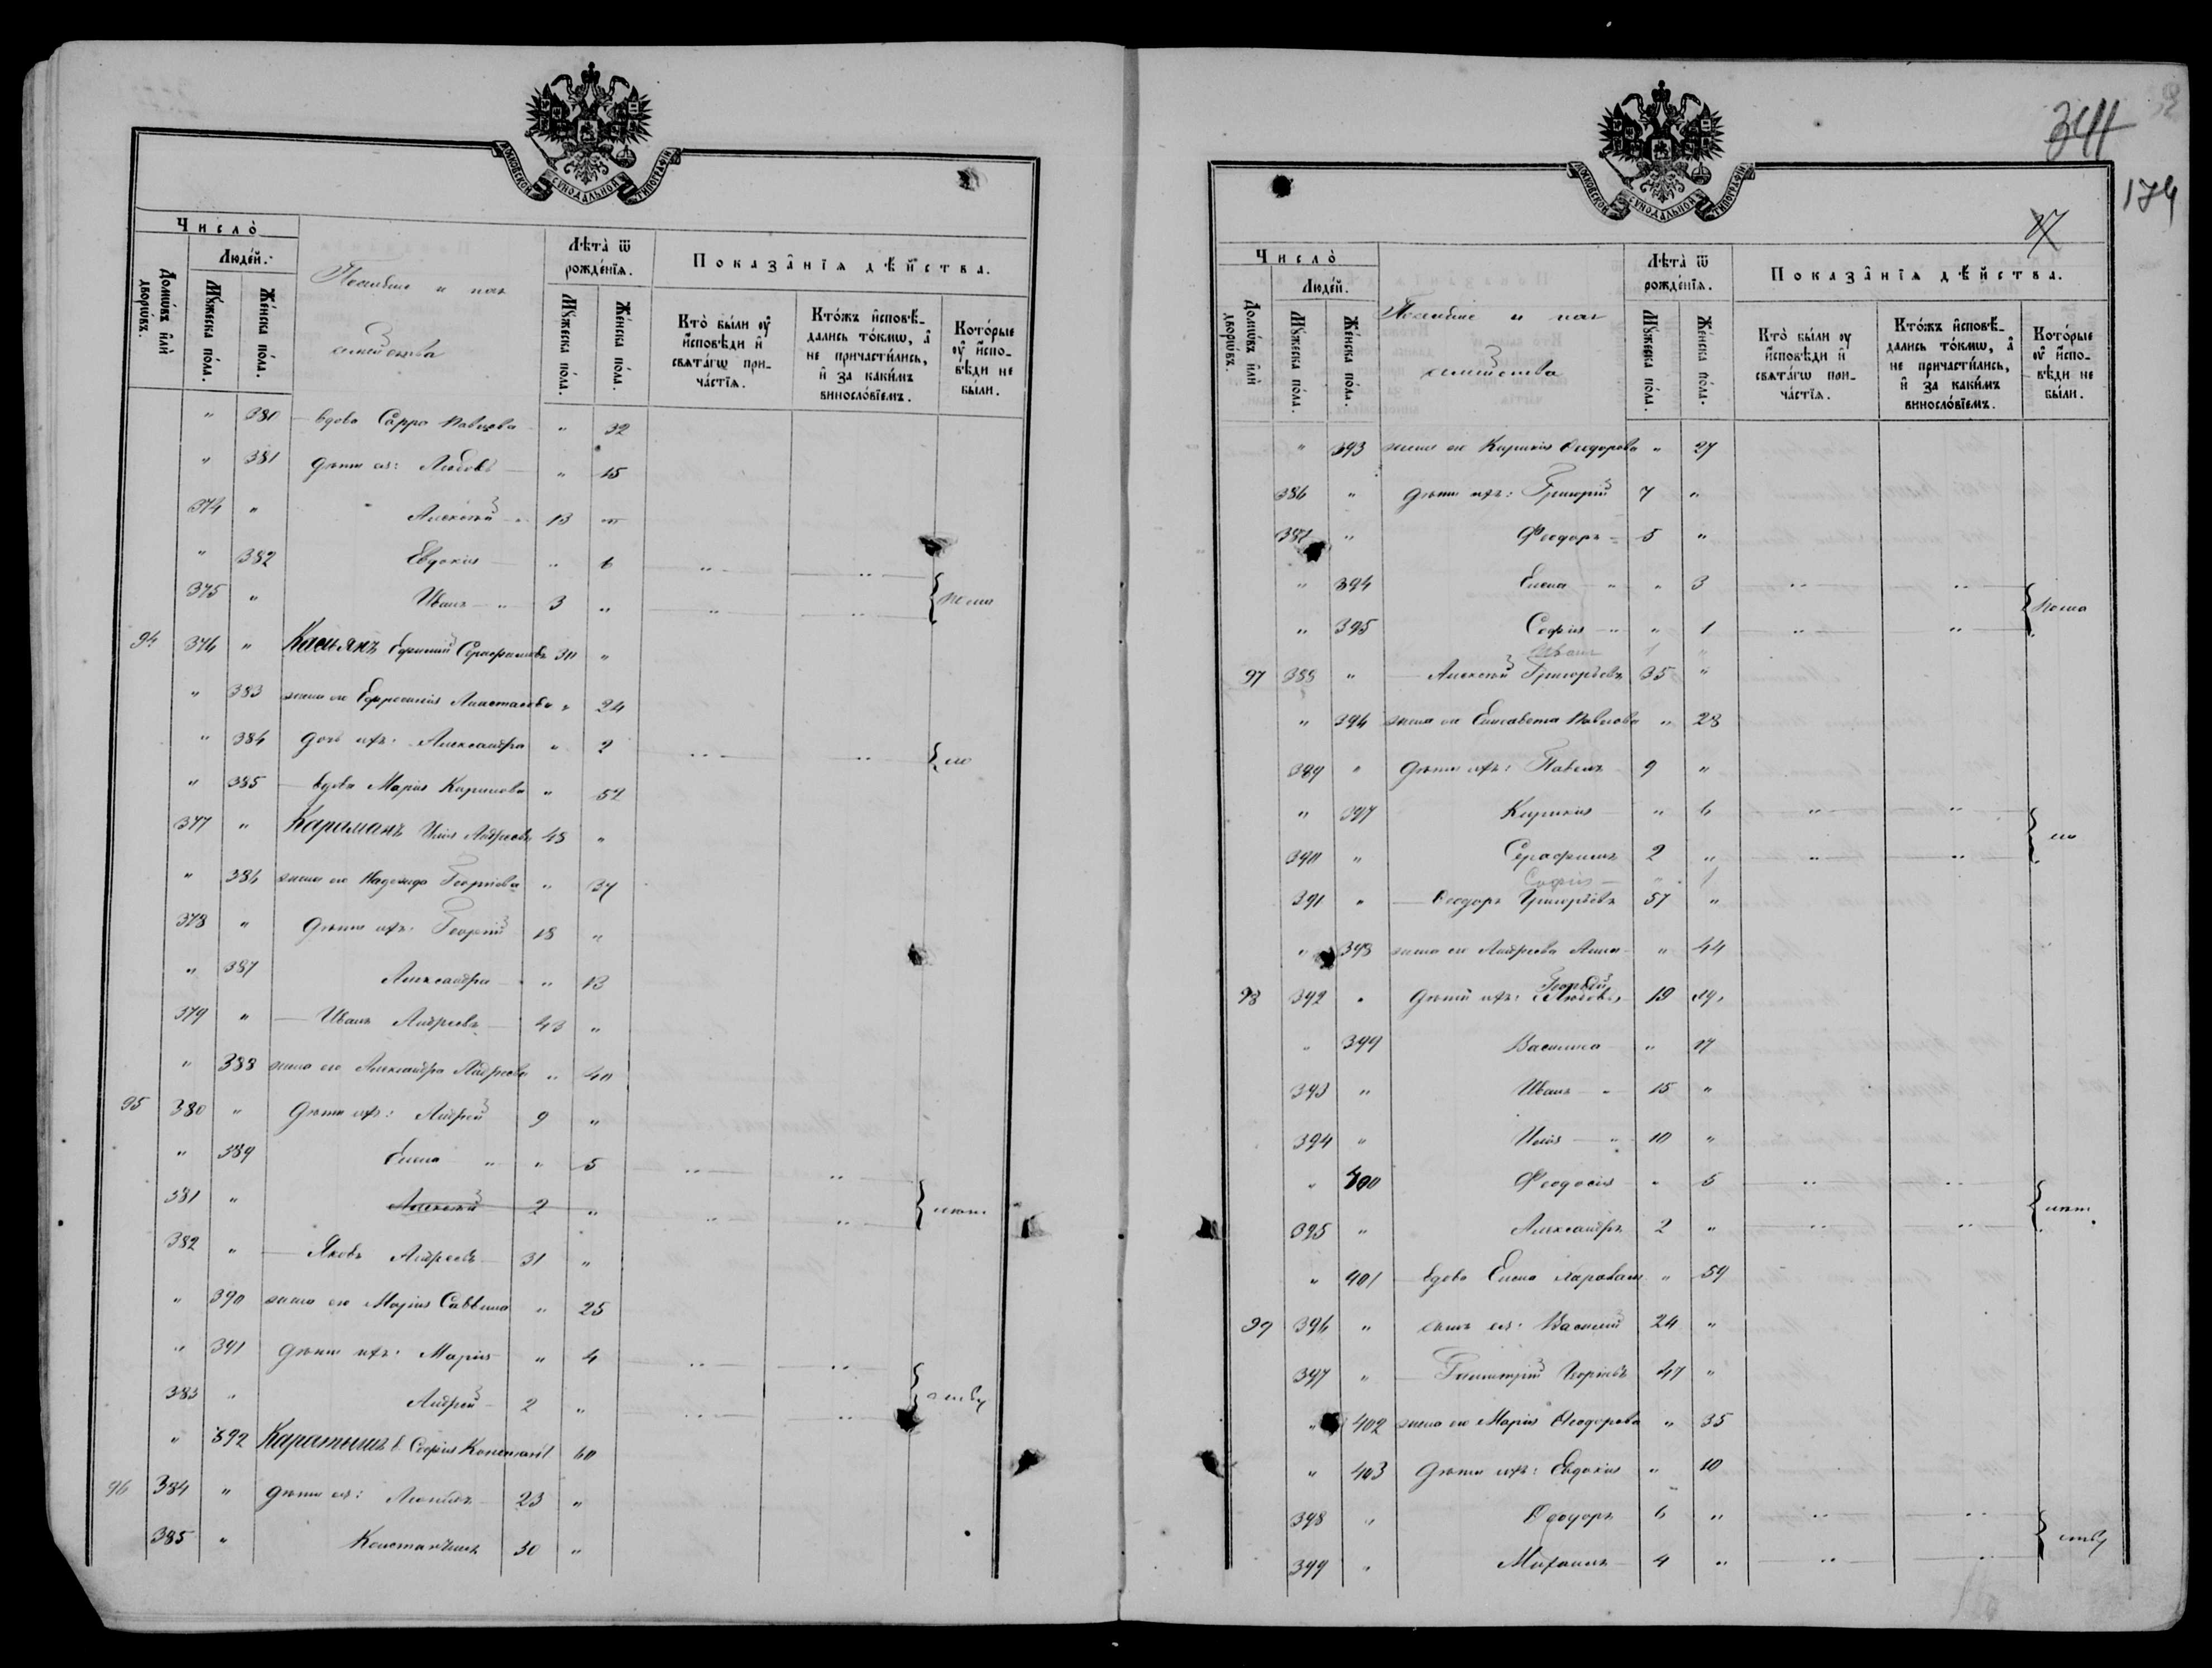 МОСКОВСКОЙ СѴНОДАЛЬНОЙ ТИПОГРАФІИ
Число̀
Люде́й.
Домѡ́въ и҆лѝ дворѡ́въ.
Мꙋ́жеска по́ла.
Же́нска по́ла.
семейства
Лѣ́та ѿ рожде́нїѧ.
Мꙋ́жеска по́ла.
Же́нска по́ла.
Показа̂нїѧ дѣ́йства.
Кто̀ бы́ли ᲂу҆ и҆́сповѣди и҆ свѧта́гѡ причⷭ҇тїѧ.
Кто́жъ и҆сповѣ́дались то́кмѡ, а҆ не причасти́лись, и҆ за каки́мъ винослові́емъ.
Кото́рые ᲂу҆ и҆́сповѣди не бы́ли.
" 380 вдова Сарра Павлова " 32
" 381 дѣти ея: Любовь " 15
374 " Алексѣй 13 "
" 382 Евдокія " 6
375 " Иванъ 3 "
94 376 " Касьянъ Серафимовъ 30 "
" 383 жена его Евфросинія Анастасова " 24
" 384 дочь ихъ: Александра " 2
" 385 вдова Марія " 52
377 " Караманъ Илія Андреевъ 48 "
" 386 жена его Надежда Георгіева " 37
378 " дѣти ихъ: Георгій 18 "
" 387 Александра " 13
379 " Иванъ Андреевъ 43 "
" 388 жена его Александра Андреева " 40
95 380 " дѣти ихъ: Андрей 9 "
" 389 Елена " 5
381 " Алексѣй 2 "
382 " Яковъ Андреевъ 31 "
" 390 жена его Марія Саввина " 25
" 391 дѣти ихъ: Марія " 4
383 " Андрей 2 "
" 392 Софія Констант. 60
96 384 " дѣти ея: 23 "
385 " Константинъ 30 "
344
174
27
МОСКОВСКОЙ СѴНОДАЛЬНОЙ ТИПОГРАФІИ
Число̀
Люде́й.
Домѡ́въ и҆лѝ дворѡ́въ.
Мꙋ́жеска по́ла.
Же́нска по́ла.
семейства
Лѣ́та ѿ рожде́нїѧ.
Мꙋ́жеска по́ла.
Же́нска по́ла.
Показа̂нїѧ дѣ́йства.
Кто̀ бы́ли ᲂу҆ и҆́сповѣди и҆ свѧта́гѡ причⷭ҇тїѧ.
Кто́жъ и҆сповѣ́дались то́кмѡ, а҆ не причасти́лись, и҆ за каки́мъ винослові́емъ.
Кото́рые ᲂу҆ и҆́сповѣди не бы́ли.
" 393 жена его Кирикія Ѳеодорова " 27
386 " дѣти ихъ: Григорій 7 "
387 " Ѳеодоръ 5 "
" 394 Елена " 3
" 395 Софія " 1
Иванъ 1 "
97 388 " Алексѣй Григорьевъ 35 "
" 396 жена его Елисавета Павлова " 28
389 " дѣти ихъ: Павелъ 9 "
" 397 Кирикія " 6
390 " Серафимъ 2 "
Софія " 1
391 " Ѳеодоръ Григорьевъ 57 "
" 398 жена его Андреева Анна " 44
98 392 " дѣти ихъ: Георгій 19 "
" 399 Василиса " 17
393 " Иванъ 15 "
394 " Илія 10 "
" 400 Ѳеодосія " 5
395 " Александръ 2 "
" 401 вдова Елена " 59
99 396 " сынъ ея: Василій 24 "
397 " Димитрій Георгіевъ 47 "
" 402 жена его Марія Ѳеодорова " 35
" 403 дѣти ихъ: Евдокія " 10
398 " Ѳеодоръ 6 "
399 " Михаилъ 4 "